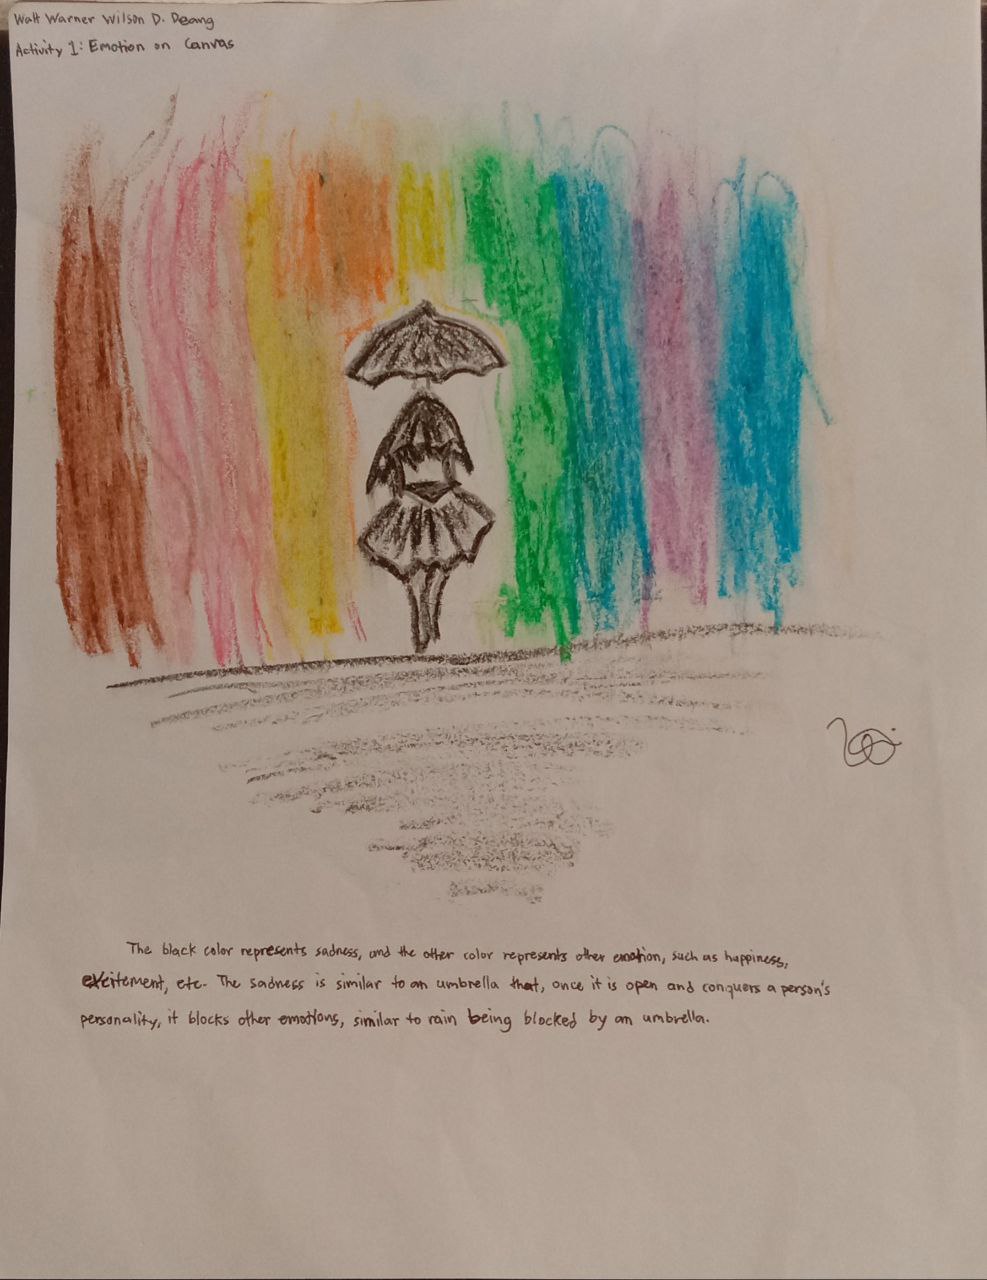 Walt Warner Wilson D. Deang
Activity 1: Emotion on Canvas
The black color represents sadness, and the other color represents other emotion, such as happiness,
excitement, etc. The sadness is similar to an umbrella that, once it is open and conquers a person's
personality, it blocks other emotions, similar to rain being blocked by an umbrella.